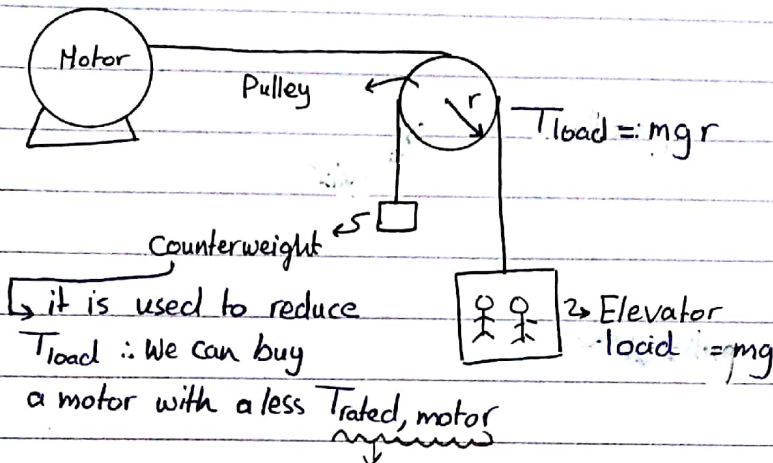 Motor
Pulley
r
Tload = mgr
Counterweight
it is used to reduce
Tload ∴ We can buy
a motor with a less Trated, motor
Elevator
load = mg